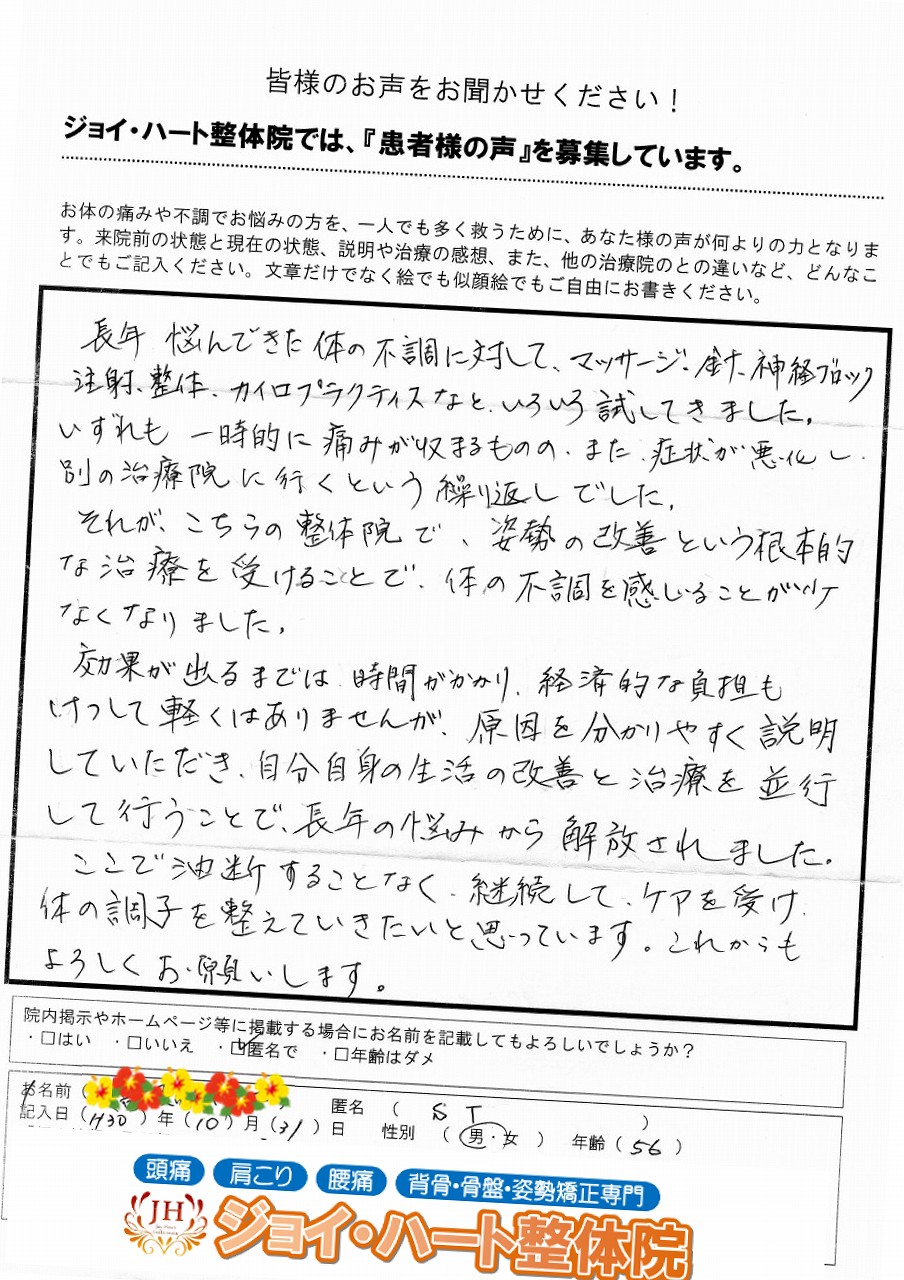 皆様のお声をお聞かせください！
ジョイ・ハート整体院では、『患者様の声』を募集しています。
お体の痛みや不調でお悩みの方を、一人でも多く救うために、あなた様の声が何よりの力となりま
す。来院前の状態と現在の状態、説明や治療の感想、また、他の治療院のとの違いなど、どんなこ
とでもご記入ください。文章だけでなく絵でも似顔絵でもご自由にお書きください。
長年 悩んできた体の不調に対して、マッサージ、針、神経ブロック
注射、整体、カイロプラクティスなど、いろいろ試してきました。
いずれも 一時的に痛みが収まるものの、また、症状が悪化し、
別の治療院に行くという繰り返しでした。
それが、こちらの整体院で、姿勢の改善という根本的
な治療を受けることで、体の不調を感じることが
なくなりました。
効果が出るまでは、時間がかかり、経済的な負担も
けっして軽くはありませんが、原因を分かりやすく説明
していただき、自分自身の生活の改善と治療を並行
して行うことで、長年の悩みから解放されました。
ここで油断することなく、継続して、ケアを受け、
体の調子を整えていきたいと思っています。これからも
よろしくお願いします。
院内掲示やホームページ等に掲載する場合にお名前を記載してもよろしいでしょうか？
・□はい ・□いいえ ・☑匿名で ・□年齢はダメ
お名前 ( 匿名 ( S T )
記入日 (H30) 年 (10) 月 (31) 日 性別 ( 男・女 ) 年齢 (56)
頭痛 肩こり 腰痛 背骨・骨盤・姿勢矯正専門
JH ジョイ・ハート整体院